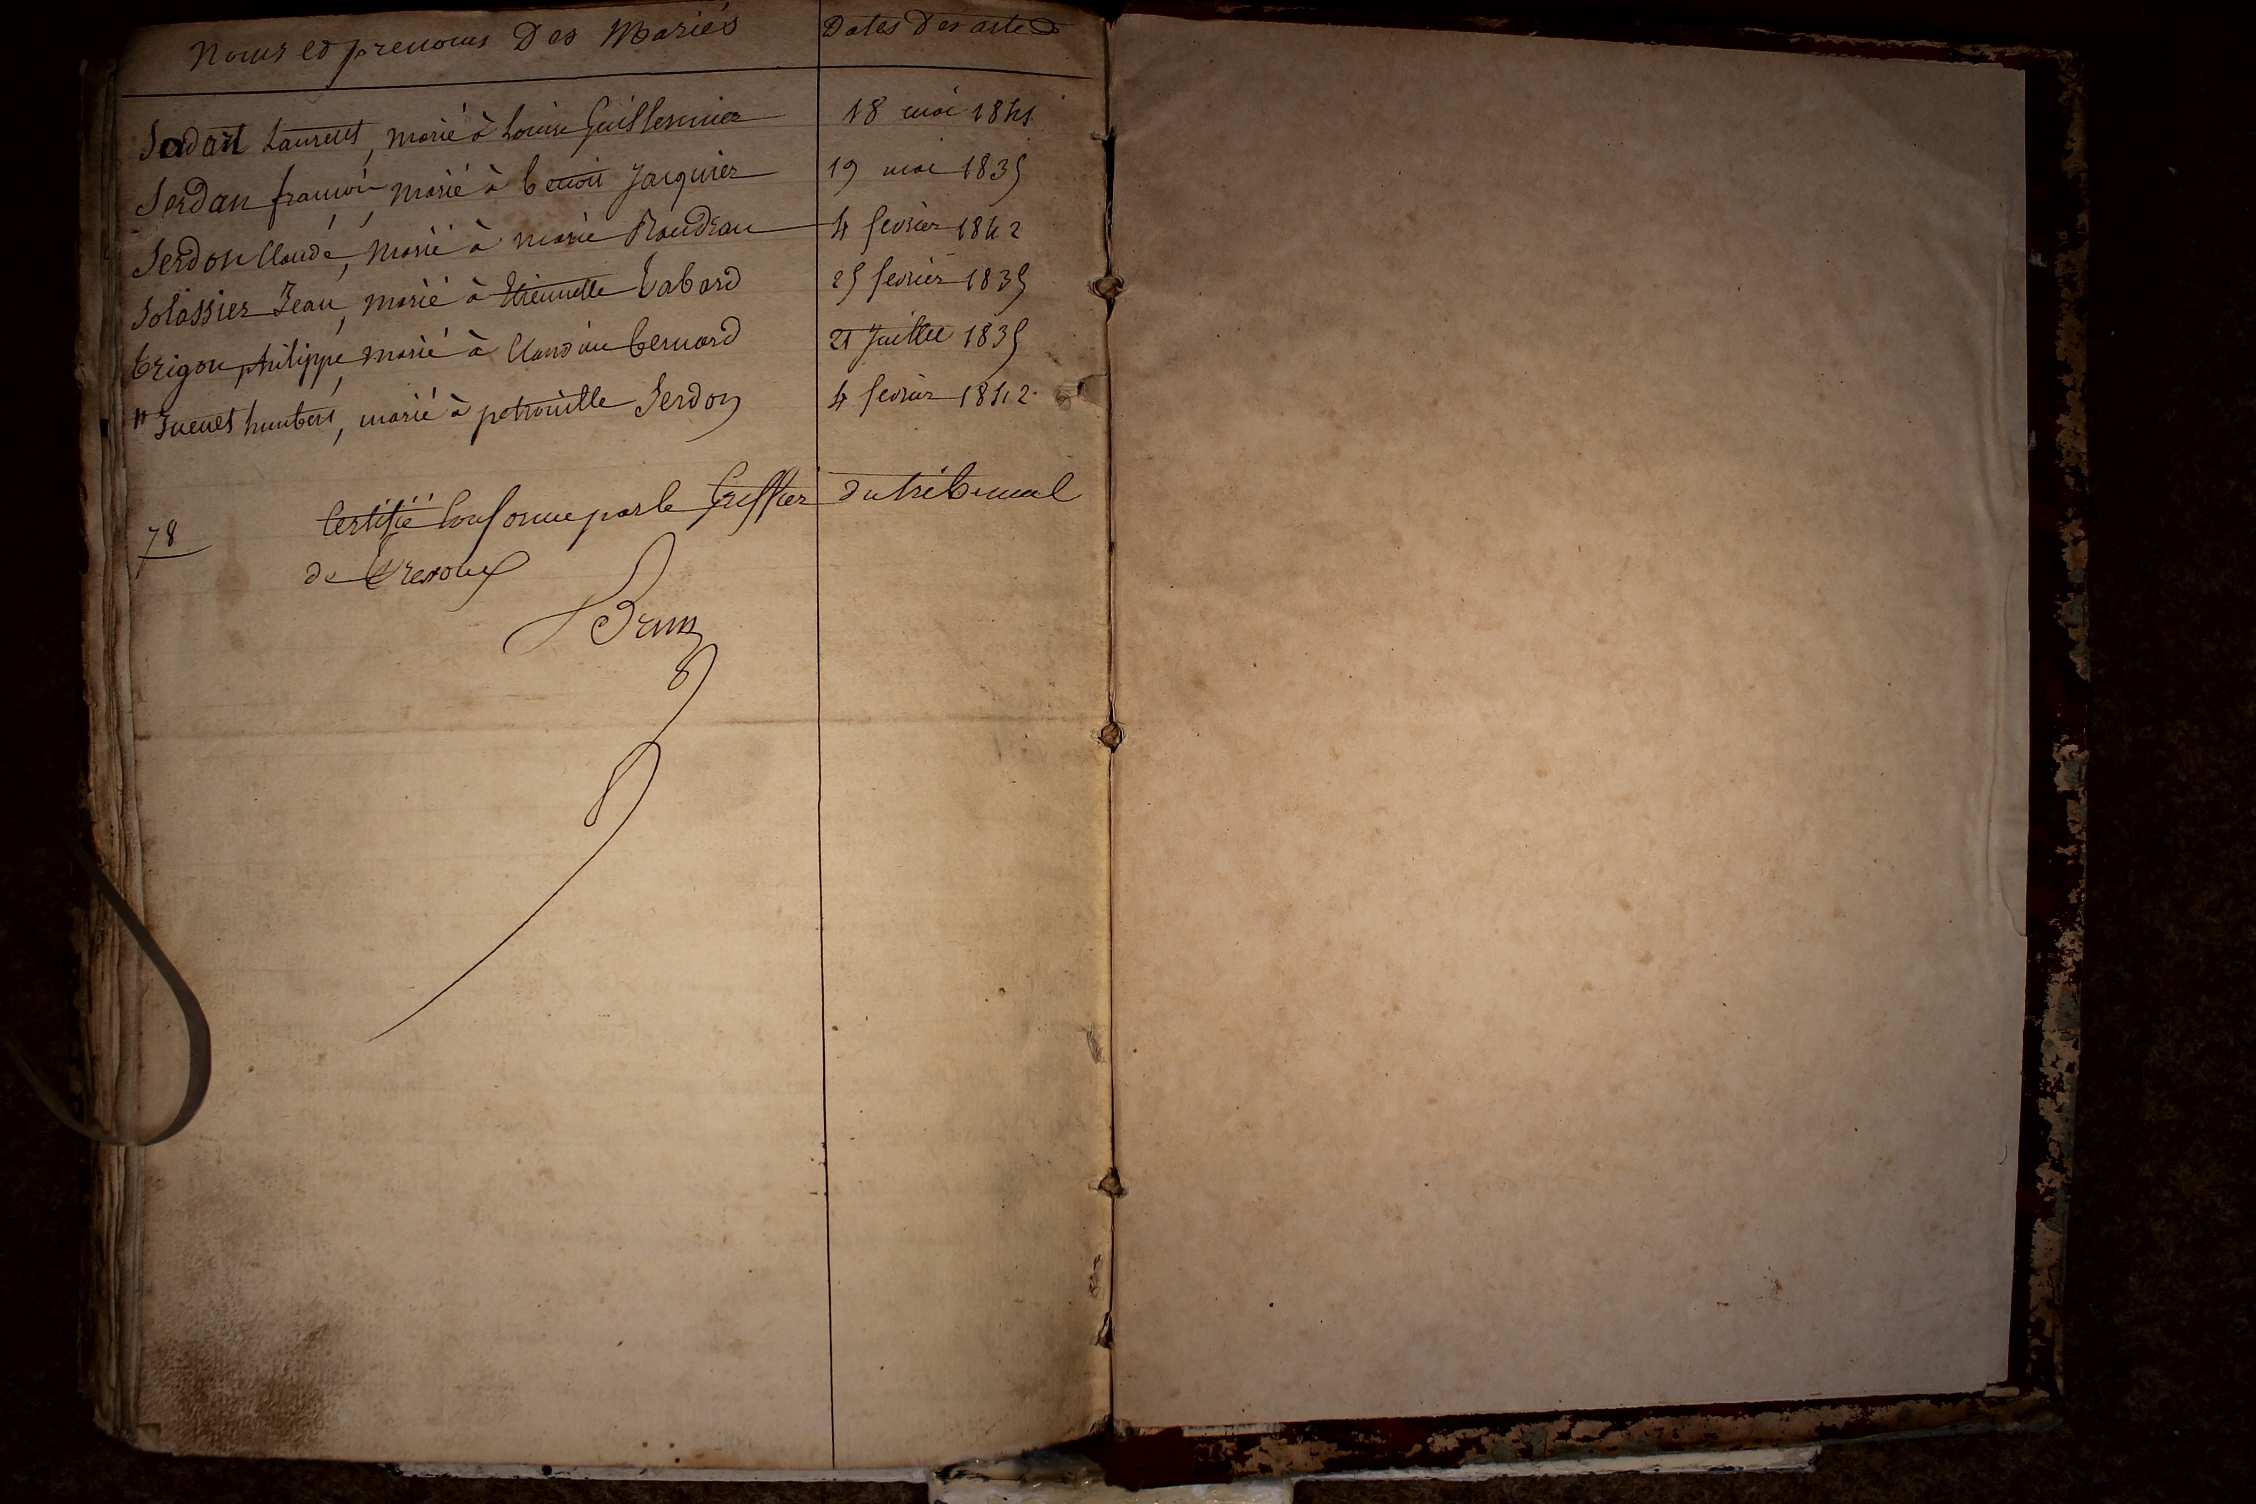 Noms et prenoms Des Mariés Dates Des actes
Sadan Laurent, marié à Louise Guillermier 18 mai 1841
Serdan francois, marié à benoit Jacquier 19 mai 1835
Serdon Claude, marié à marie Raudran 4 fevrier 1842
Solassier Jean, marié à Etiennette Tabard 25 fevrier 1835
trigon philippe, marié à Claudine bernard 21 Juillet 1835
Juenet humbert, marié à petronille Serdon 4 fevrier 1842.
78 Certifié Conforme par le Greffier du tribunal
de Trevoux
Brun